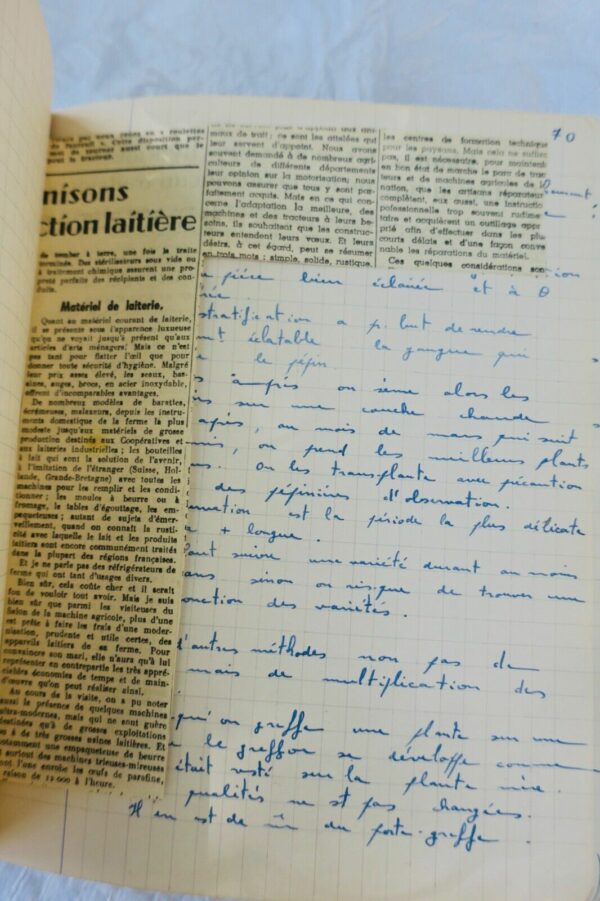 de l'auteuil ». Cette disposition per-
met de tourner aussi court que le
peut le tracteur.
nisons
ction laitière
de tomber à terre, une fois la traite
terminée. Des stérilisateurs sous vide ou
à traitement chimique assurent une pro-
preté parfaite des récipients et des con-
duits.
Matériel de laiterie.
Quant au matériel courant de laiterie,
il se présente sous l'apparence luxueuse
qu'on ne voyait jusqu'à présent qu'aux
articles d'arts ménagers. Mais ce n'est
pas tant pour flatter l'œil que pour
donner toute sécurité d'hygiène. Malgré
leur prix assez élevé, les seaux, bas-
sines, auges, brocs, en acier inoxydable,
offrent d'incomparables avantages.
De nombreux modèles de barattes,
écrémeuses, malaxeurs, depuis les instru-
ments domestique de la ferme la plus
modeste jusqu'aux matériels de grosse
production destinés aux Coopératives et
aux laiteries industrielles ; les bouteilles
à lait qui sont la solution de l'avenir,
à l'imitation de l'étranger (Suisse, Hol-
lande, Grande-Bretagne) avec toutes les
machines pour les remplir et les condi-
tionner ; les moules à beurre ou à
fromage, le tables d'égouttage, les em-
paqueteuses ; autant de sujets d'émer-
veillement, quand on connaît la rusti-
cité avec laquelle le lait et les produits
laitiers sont encore communément traités
dans la plupart des régions françaises.
Et je ne parle pas des réfrigérateurs de
ferme qui ont tant d'usages divers.
Bien sûr, cela coûte cher et il serait
fou de vouloir tout avoir. Mais je suis
bien sûr que parmi les visiteurs du
Salon de la machine agricole, plus d'une
est prête à faire les frais d'une moder-
nisation, prudente et utile certes, des
appareils laitiers de sa ferme. Pour
convaincre son mari, elle n'aura qu'à lui
représenter en contrepartie les très appré-
ciables économies de temps et de main-
d'œuvre qu'on peut réaliser ainsi.
Au cours de la visite, on a pu noter
aussi la présence de quelques machines
ultra-modernes, mais qui ne sont guère
destinées qu'à de grosses exploitations
ou à de très grosses usines laitières. Et
notamment une empaqueteuse de beurre
et surtout des machines trieuses-mireuses
dont l'une enrobe les œufs de parafine,
à raison de 12 000 à l'heure.
maux de trait ; ce sont les attelées qui
leur servent d'appoint. Nous avons
souvent demandé à de nombreux agri-
culteurs de différents départements
leur opinion sur la motorisation ; nous
pouvons assurer que tous y sont par-
faitement acquis. Mais en ce qui con-
cerne l'adaptation la meilleure, des
machines et des tracteurs à leurs be-
soins, ils souhaitent que les construc-
teurs entendent leurs vœux. Et leurs
désirs, à cet égard, peut es résumer
en trois mots : simple, solide, rustique.
les centres de formation technique
pour les paysans. Mais cela ne suffira
pas, il est nécessaire, pour maintenir
en bon état de marche le parc de trac-
teurs et de machines agricoles de la
nation, que les artisans réparateurs
complètent, eux aussi, une instruction
professionnelle trop souvent rudimen-
taire et acquièrent un outillage appro-
prié afin d'effectuer dans les plus
courts délais et d'une façon conve-
nable les réparations du matériel.
Ces quelques considérations son-
70
pièce bien éclairée et à θ
stratification a p. but de rendre
éclatable la gangue qui
le pépin.
après on sème alors les
sur une couche chaude
après, au mois de mars qui suit
on prend les meilleurs plants
On les transplante avec précaution
des pépinières d'observation.
est la période la plus délicate
+ longue.
faut suivre une variété durant au moins
ans sinon on risque de trouver une
des variétés.
d'autres méthodes non pas de
mais de multiplication des
qu'on greffe une plante sur une
le greffon se développe comme
était resté sur la plante mère.
qualités ne st pas changées.
Il en est de m̂ du porte-greffe.